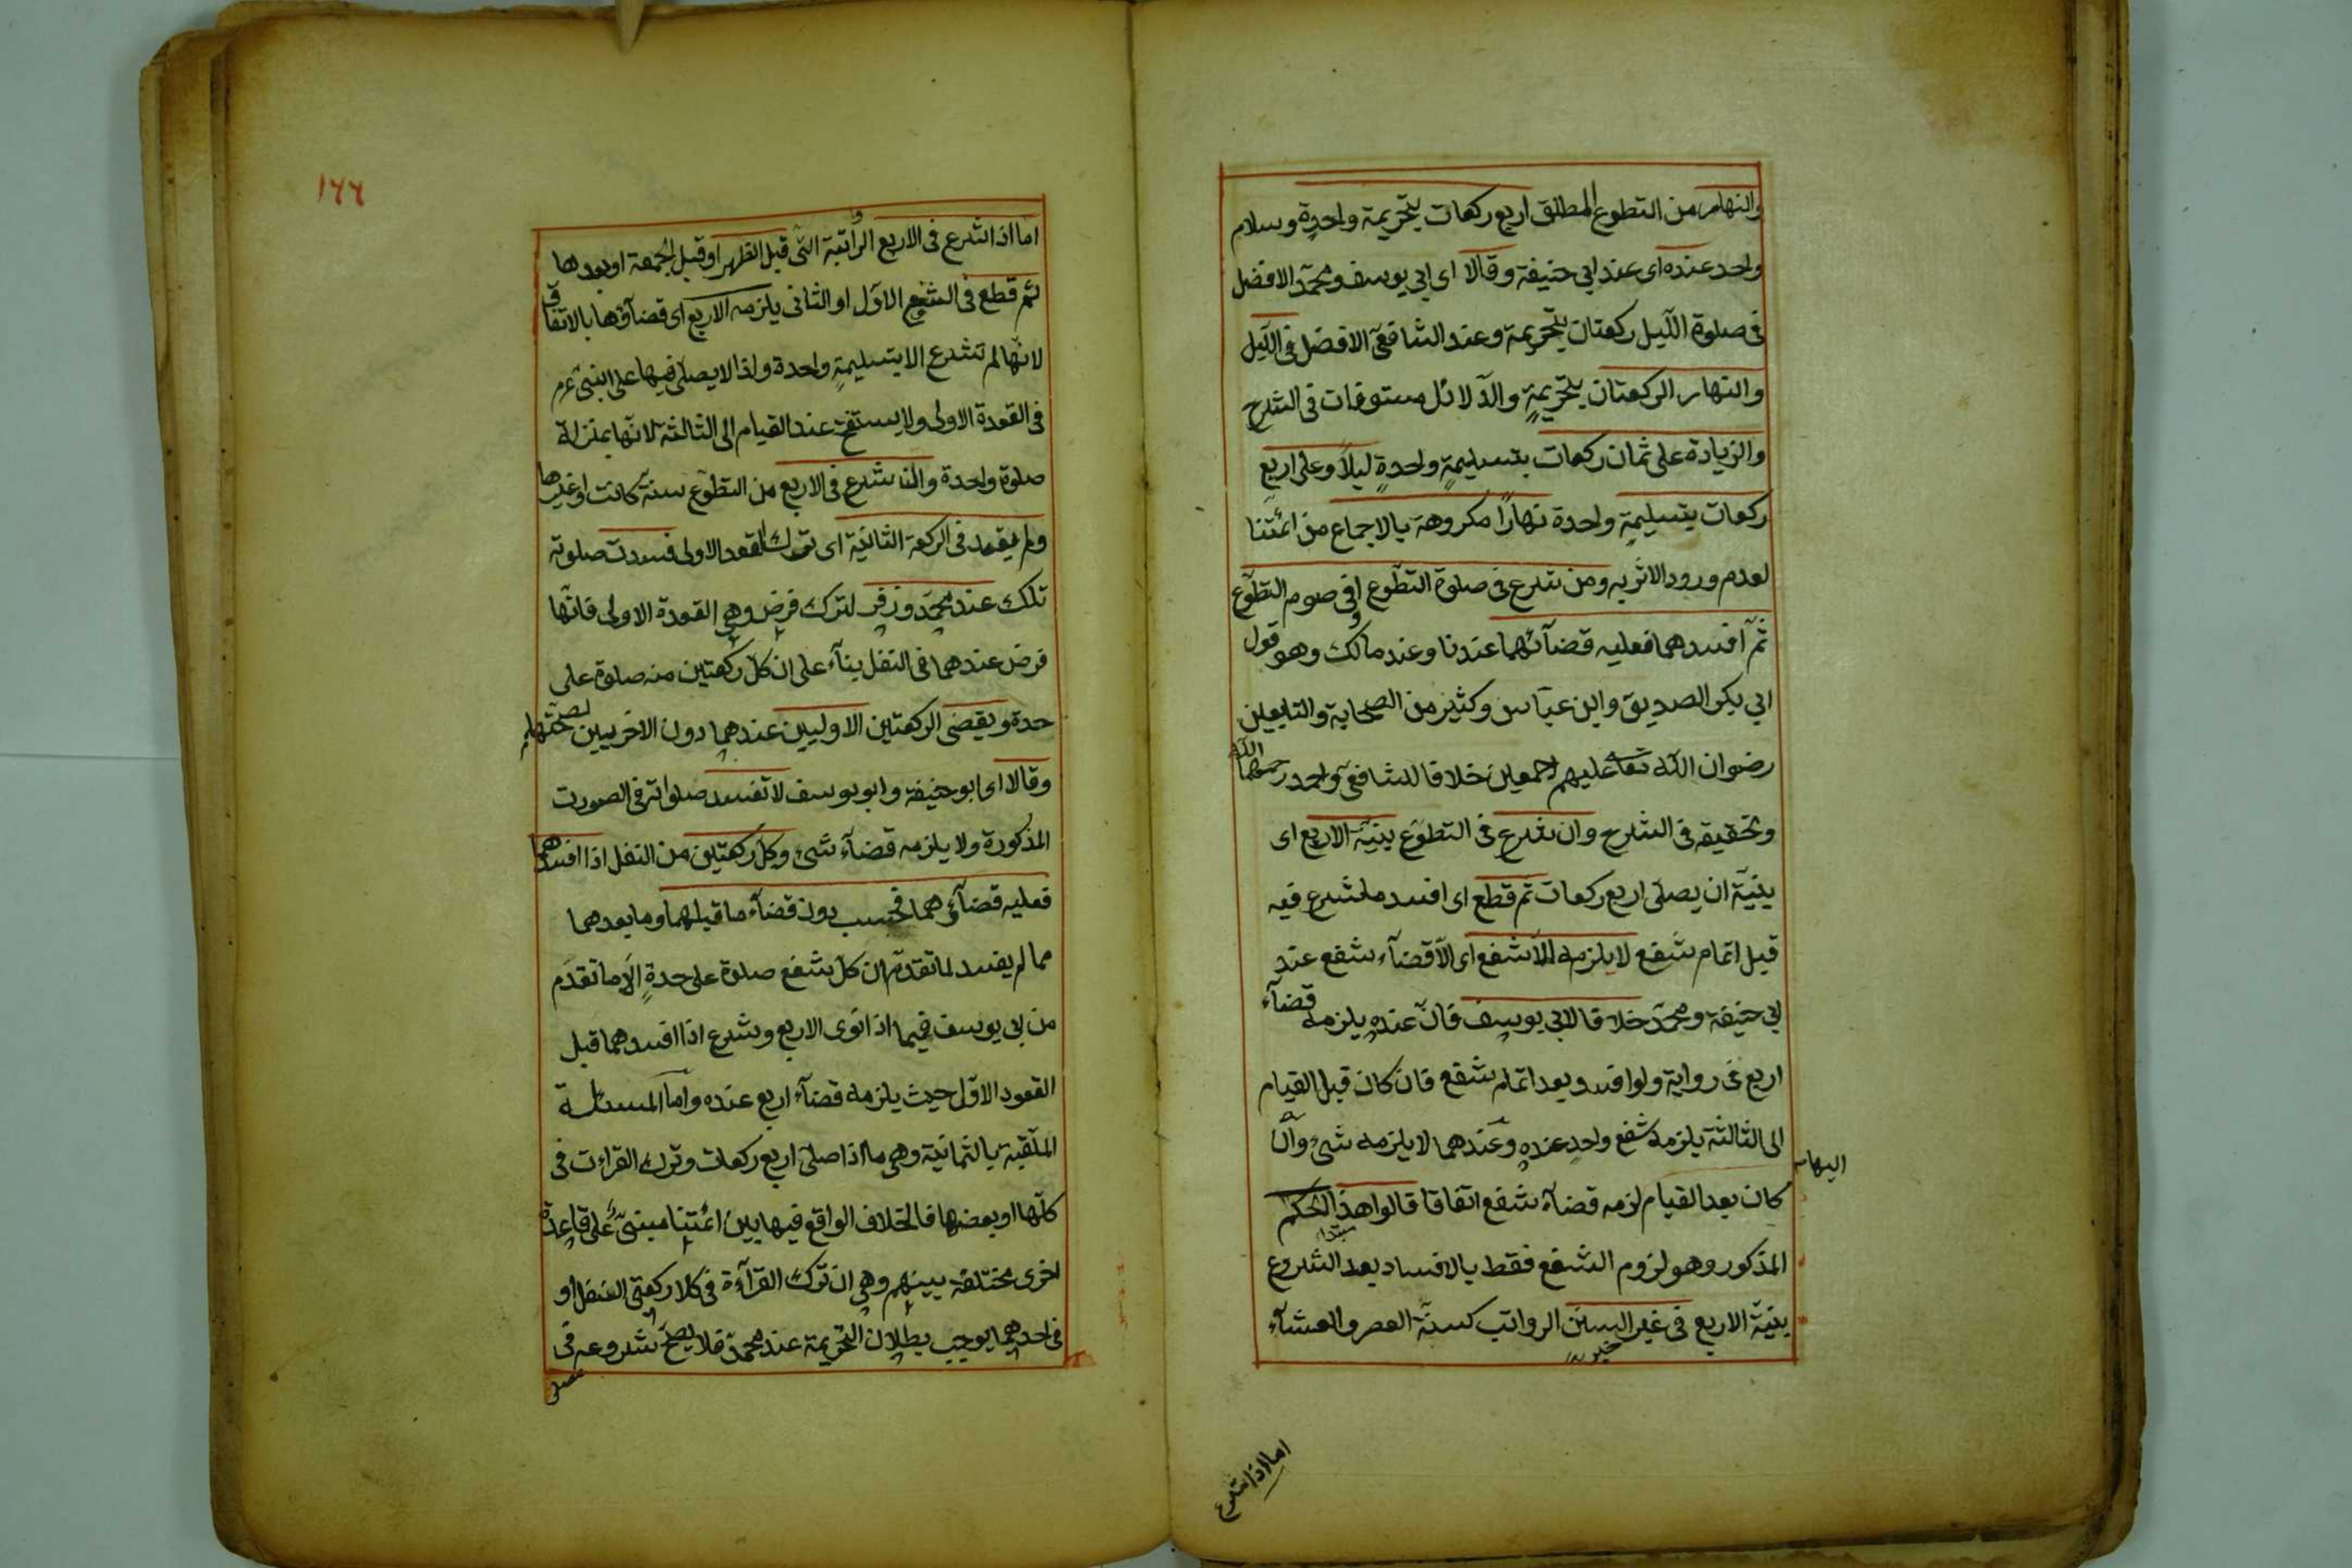 والنهار من التطوع المطلق اربع ركعات بتحريمة واحدة وسلام
واحد عنده اى عند ابي حنيفة وقالا اى ابي يوسف ومحمّد الافضل
فى صلوة اللّيل ركعتان بتحريمة وعند الشافعىّ الافضل فى اللّيل
والنهار الركعتان بتحريمةٍ والدّلائل مستوفات فى الشرح
والزيادة على ثمان ركعات بتسليمةٍ واحدةٍ ليلاً وعلى اربع
ركعات بتسليمةٍ واحدة نهارًا مكروهة بالاجماع من ائمّتنا
لعدم ورود الاثر به ومن شرع فى صلوة التطوّع او فى صوم التطوّع
ثمّ افسدهما فعليه قضآئهما عندنا وعند مالك وهو قول
ابي بكر الصديق وابن عبّاس وكثير من الصحابة والتابعين
رضوان اللّه تعا عليهم اجمعين خلافا للشافعىّ واحمد رحمهما اللّه
وتحقيقه فى الشرح وان شرع فى التطوّع بنيّة الاربع اى
بنيّة ان يصلّى اربع ركعات ثم قطع اى افسد ما شرع فيه
قبل اتمام شفع لا يلزمه الّا شفع اى الّا قضآء شفع عند
ابي حنيفة ومحمّد خلافا لابي يوسف فانّ عنده يلزمه قضآء
اربع فى رواية ولو افسد بعد اتمام شفع فان كان قبل القيام
الى الثالثة يلزمه شفع واحد عنده وعندهما لا يلزمه شىء وان
اليها
كان بعد القيام لزمه قضآء شفع اتفاقا قالوا هذا الحكم
مبتدا
المذكور وهو لزوم الشفع فقط بالافساد بعد الشروع
بنيّة الاربع فى غير السنن الرواتب كسنّة العصر والعشآء
خبره
اما اذا شرع
١٦٦
اما اذا شرع فى الاربع الراتبة التى قبل الظهر او قبل الجمعة او بعدها
ثم قطع فى الشفع الاوّل او الثانى يلزمه الاربع اى قضآؤها بالاتفاق
لانّها لم تشرع الا بتسليمةٍ واحدة ولذا لا يصلّى فيها على النبىّ عم
فى القعدة الاولى ولا يستفتح عند القيام الى الثالثة لانّها بمنزلة
صلوة واحدة وان شرع فى الاربع من التطوّع سنّة كانت او غيرها
ولم يقعد فى الركعة الثانية اى ترك القعود الاولى فسدت صلوته
تلك عند محمّد وزفر لترك فرض وهى القعدة الاولى فانّها
فرض عندهما فى النفل بنآء على ان كلّ ركعتين منه صلوة على
حدة ويقضى الركعتين الاوليين عندهما دون الاخريين لصحّتهما
وقالا اى ابو حنيفة وابو يوسف لا تفسد صلواته فى الصورت
المذكورة ولا يلزمه قضآء شىء وكل ركعتين من النفل اذا افسدهما
فعليه قضآؤهما فحسب دون قضآء ما قبلهما وما بعدهما
مما لم يفسد لما تقدّم ان كلّ شفع صلوة على حدةٍ الّا ما تقدّم
من ابي يوسف فيما اذا نوى الاربع وشرع اذا افسدهما قبل
القعود الاوّل حيث يلزمه قضآء اربع عنده وامّا المسئلة
الملقّبة بالثمانية وهى ما اذا صلّى اربع ركعات وترك القراءت فى
كلّها او بعضها فالخلاف الواقع فيها بين ائمّتنا مبنىّ على قاعدة
اخرى مختلفة بينهم وهى ان ترك القرآءة فى كلا ركعتى النفل او
فى احدهما يوجب بطلان التحريمة عند محمّد فلا يصحّ شروعه فى